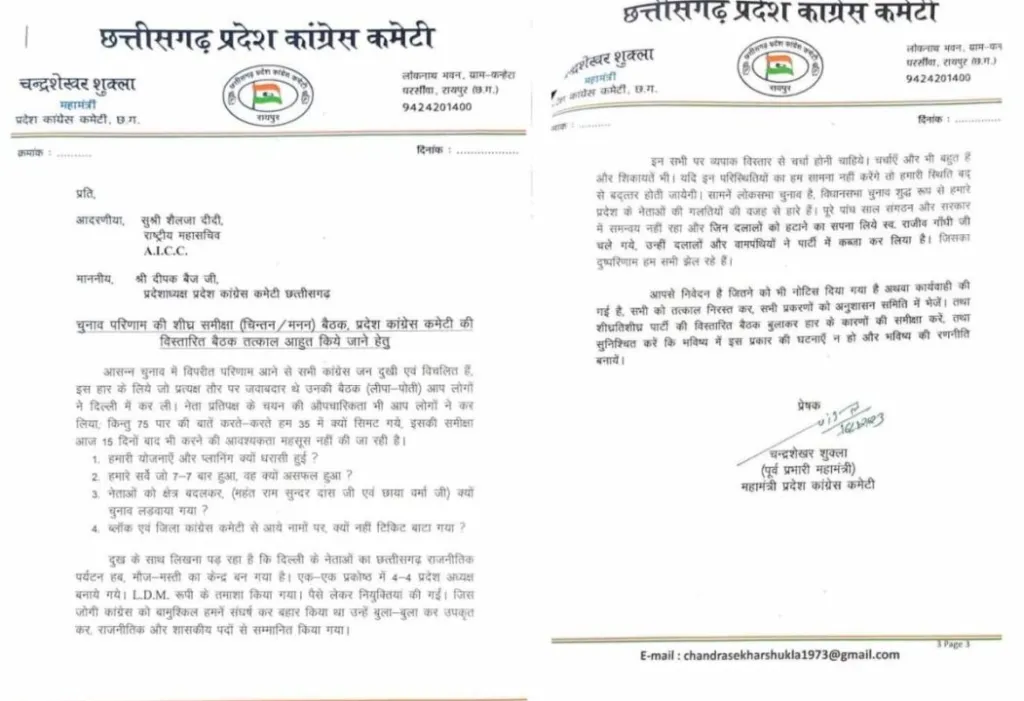 छत्तीसगढ़ प्रदेश कांग्रेस कमेटी
चन्द्रशेखर शुक्ला
महामंत्री
प्रदेश कांग्रेस कमेटी, छ.ग.
रायपुर
लोकनाथ भवन, ग्राम-कन्हेरा
धरसींवा, रायपुर (छ.ग.)
9424201400
क्रमांक : ..........
दिनांक : ..................
प्रति,
आदरणीया, सुश्री शैलजा दीदी,
राष्ट्रीय महासचिव
A.I.C.C.
माननीय, श्री दीपक बैज जी,
प्रदेशाध्यक्ष प्रदेश कांग्रेस कमेटी छत्तीसगढ़
चुनाव परिणाम की शीघ्र समीक्षा (चिन्तन/मनन) बैठक, प्रदेश कांग्रेस कमेटी की
विस्तारित बैठक तत्काल आहुत किये जाने हेतु
आसन्न चुनाव में विपरीत परिणाम आने से सभी कांग्रेस जन दुखी एवं विचलित हैं,
इस हार के लिये जो प्रत्यक्ष तौर पर जवाबदार थे उनकी बैठक (लीपा-पोती) आप लोगों
ने दिल्ली में कर ली। नेता प्रतिपक्ष के चयन की औपचारिकता भी आप लोगों ने कर
लिया; किन्तु 75 पार की बातें करते-करते हम 35 में क्यों सिमट गये, इसकी समीक्षा
आज 15 दिनों बाद भी करने की आवश्यकता महसूस नहीं की जा रही है।
1. हमारी योजनाएँ और प्लानिंग क्यों धरासी हुई ?
2. हमारे सर्वे जो 7-7 बार हुआ, वह क्यों असफल हुआ ?
3. नेताओं को क्षेत्र बदलकर, (महंत राम सुन्दर दास जी एवं छाया वर्मा जी) क्यों
चुनाव लड़वाया गया ?
4. ब्लॉक एवं जिला कांग्रेस कमेटी से आये नामों पर, क्यों नहीं टिकिट बाटा गया ?
दुख के साथ लिखना पड़ रहा है कि दिल्ली के नेताओं का छत्तीसगढ़ राजनीतिक
पर्यटन हब, मौज-मस्ती का केन्द्र बन गया है। एक-एक प्रकोष्ठ में 4-4 प्रदेश अध्यक्ष
बनाये गये। L.D.M. रूपी के तमाशा किया गया। पैसे लेकर नियुक्तियां की गईं। जिस
जोगी कांग्रेस को बामुश्किल हमनें संघर्ष कर बहार किया था उन्हें बुला-बुला कर उपकृत
कर, राजनीतिक और शासकीय पदों से सम्मानित किया गया।
छत्तीसगढ़ प्रदेश कांग्रेस कमेटी
शुक्ला
महामंत्री
कांग्रेस कमेटी, छ.ग.
लोकनाथ भवन, ग्राम-कन
धरसींवा, रायपुर (छ.ग.)
9424201400
दिनांक : ..............
इन सभी पर व्यापक विस्तार से चर्चा होनी चाहिये। चर्चाएँ और भी बहुत हैं
और शिकायतें भी। यदि इन परिस्थितियों का हम सामना नहीं करेंगे तो हमारी स्थिति बद्
से बद्त्तर होती जायेगी। सामनें लोकसभा चुनाव है, विधानसभा चुनाव शुद्ध रूप से हमारे
प्रदेश के नेताओं की गलतियों की वजह से हारे हैं। पूरे पांच साल संगठन और सरकार
में समन्वय नहीं रहा और जिन दलालों को हटाने का सपना लिये स्व. राजीव गाँधी जी
चले गये, उन्हीं दलालों और वामपंथियों ने पार्टी में कब्जा कर लिया है। जिसका
दुष्परिणाम हम सभी झेल रहे हैं।
आपसे निवेदन है जितने को भी नोटिस दिया गया है अथवा कार्यवाही की
गई है, सभी को तत्काल निरस्त कर, सभी प्रकरणों को अनुशासन समिति में भेजें। तथा
शीघ्रतिशीघ्र पार्टी की विस्तारित बैठक बुलाकर हार के कारणों की समीक्षा करें, तथा
सुनिश्चित करें कि भविष्य में इस प्रकार की घटनाएँ न हो और भविष्य की रणनीति
बनायें।
प्रेषक
चन्द्रशेखर शुक्ला
(पूर्व प्रभारी महामंत्री)
महामंत्री प्रदेश कांग्रेस कमेटी
3 Page 3
E-mail : chandrasekharshukla1973@gmail.com